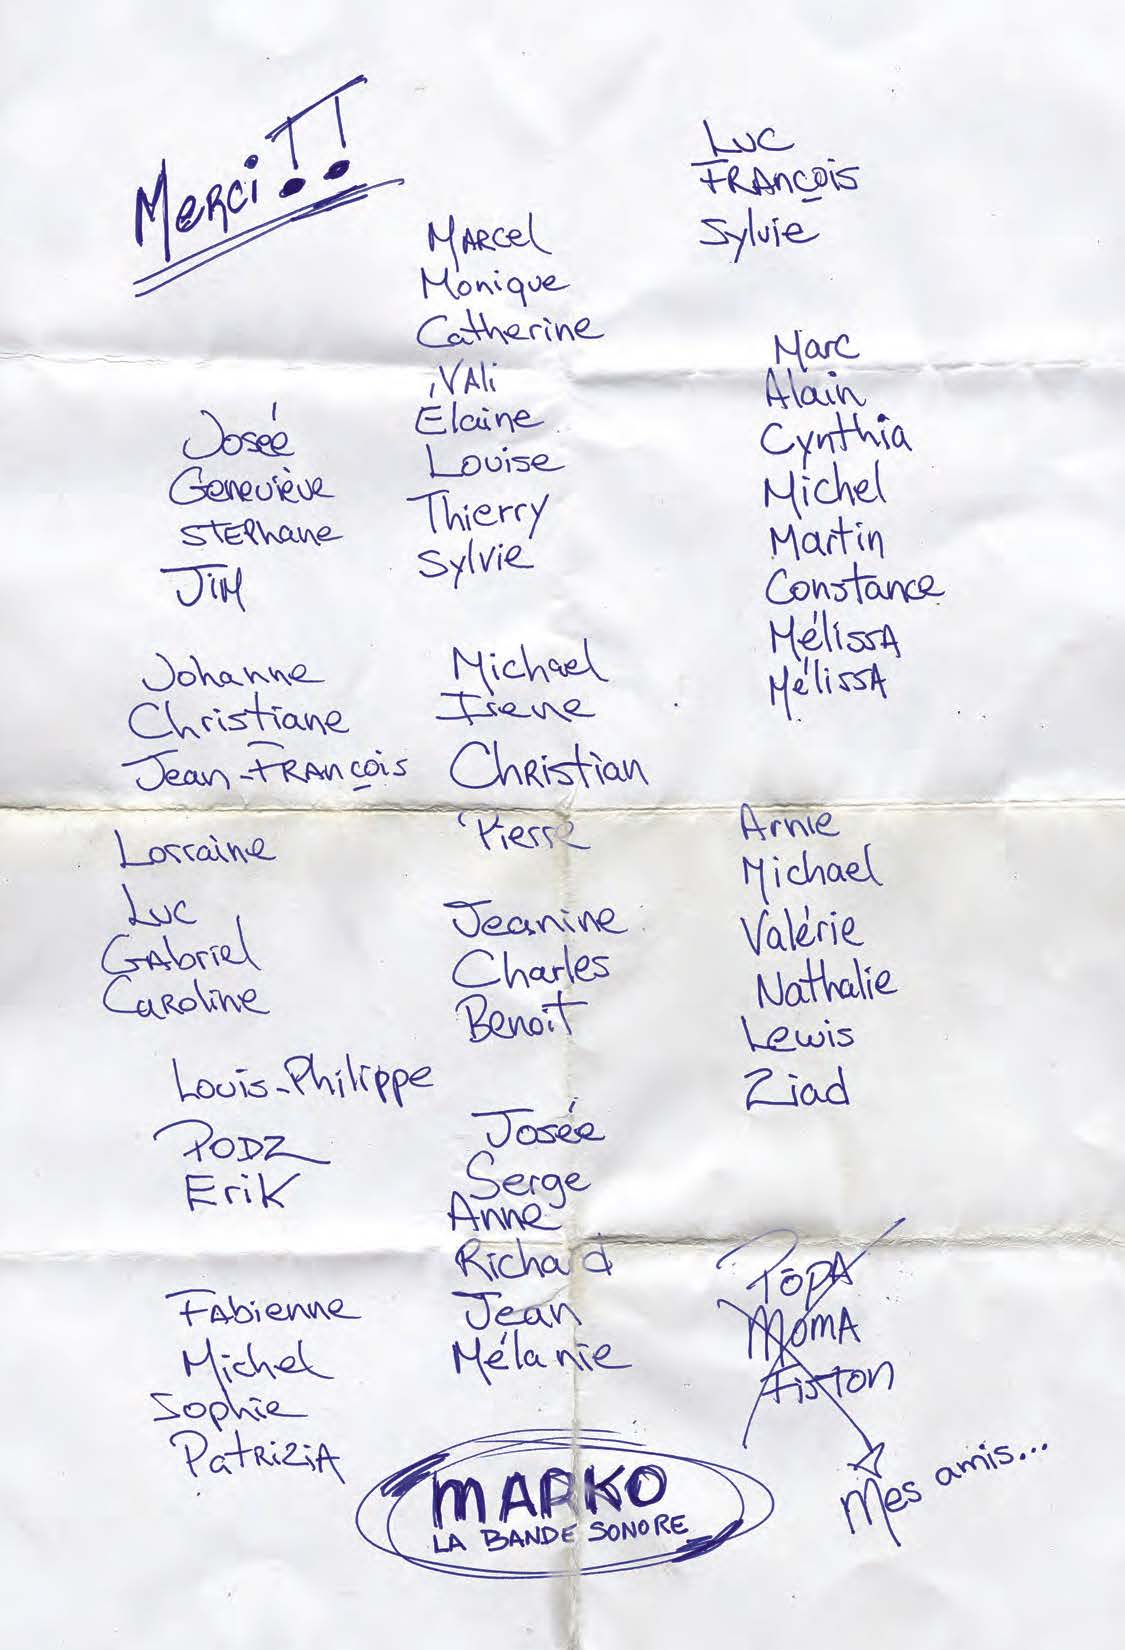 Merci !!
Josée
Geneviève
Stephane
Jim
Johanne
Christiane
Jean-François
Lorraine
Luc
Gabriel
Caroline
Louis-Philippe
PODZ
Erik
Fabienne
Michel
Sophie
Patrizia
Marcel
Monique
Catherine
Vali
Elaine
Louise
Thierry
Sylvie
Michael
Irene
Christian
Pierre
Jeanine
Charles
Benoît
Josée
Serge
Anne
Richard
Jean
Mélanie
Luc
François
Sylvie
Marc
Alain
Cynthia
Michel
Martin
Constance
Mélissa
Mélissa
Arnie
Michael
Valérie
Nathalie
Lewis
Ziad
Pôpa
Môman
Fiston
Mes amis...
MARKO
LA BANDE SONORE